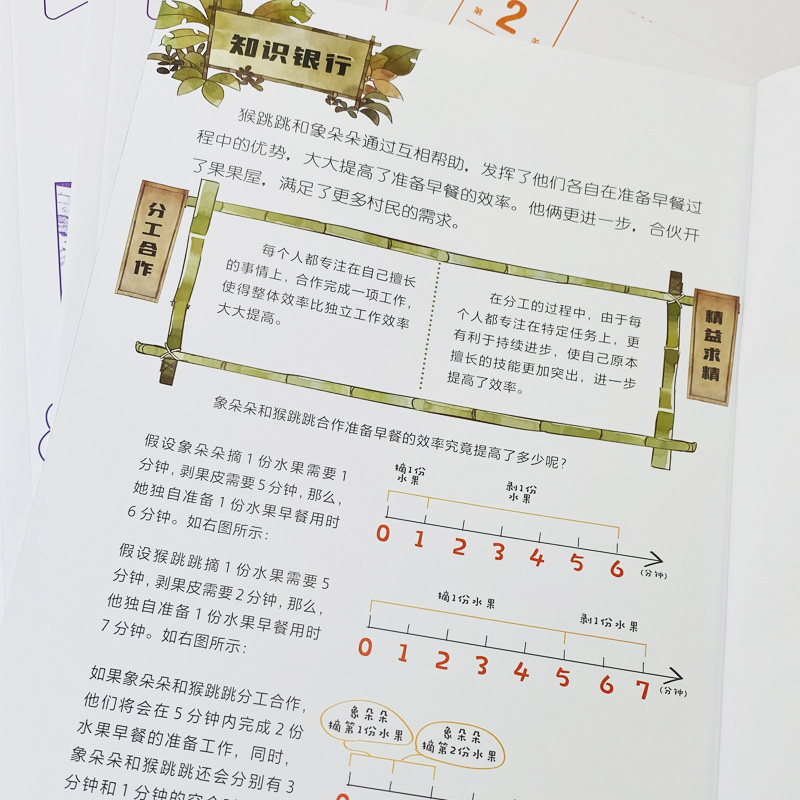 第2
知识银行
猴跳跳和象朵朵通过互相帮助，发挥了他们各自在准备早餐过
程中的优势，大大提高了准备早餐的效率。他俩更进一步，合伙开
了果果屋，满足了更多村民的需求。
分工合作
每个人都专注在自己擅长
的事情上，合作完成一项工作，
使得整体效率比独立工作效率
大大提高。
在分工的过程中，由于每
个人都专注在特定任务上，更
有利于持续进步，使自己原本
擅长的技能更加突出，进一步
提高了效率。
精益求精
象朵朵和猴跳跳合作准备早餐的效率究竟提高了多少呢？
假设象朵朵摘1份水果需要1
分钟，剥果皮需要5分钟，那么，
她独自准备1份水果早餐用时
6分钟。如右图所示：
摘1份
水果
剥1份
水果
0 1 2 3 4 5 6
(分钟)
假设猴跳跳摘1份水果需要5
分钟，剥果皮需要2分钟，那么，
他独自准备1份水果早餐用时
7分钟。如右图所示：
摘1份水果
剥1份水果
0 1 2 3 4 5 6 7
(分钟)
如果象朵朵和猴跳跳分工合作，
他们将会在5分钟内完成2份
水果早餐的准备工作，同时，
象朵朵和猴跳跳还会分别有3
分钟和1分钟的空
象朵朵
摘第1份水果
象朵朵
摘第2份水果